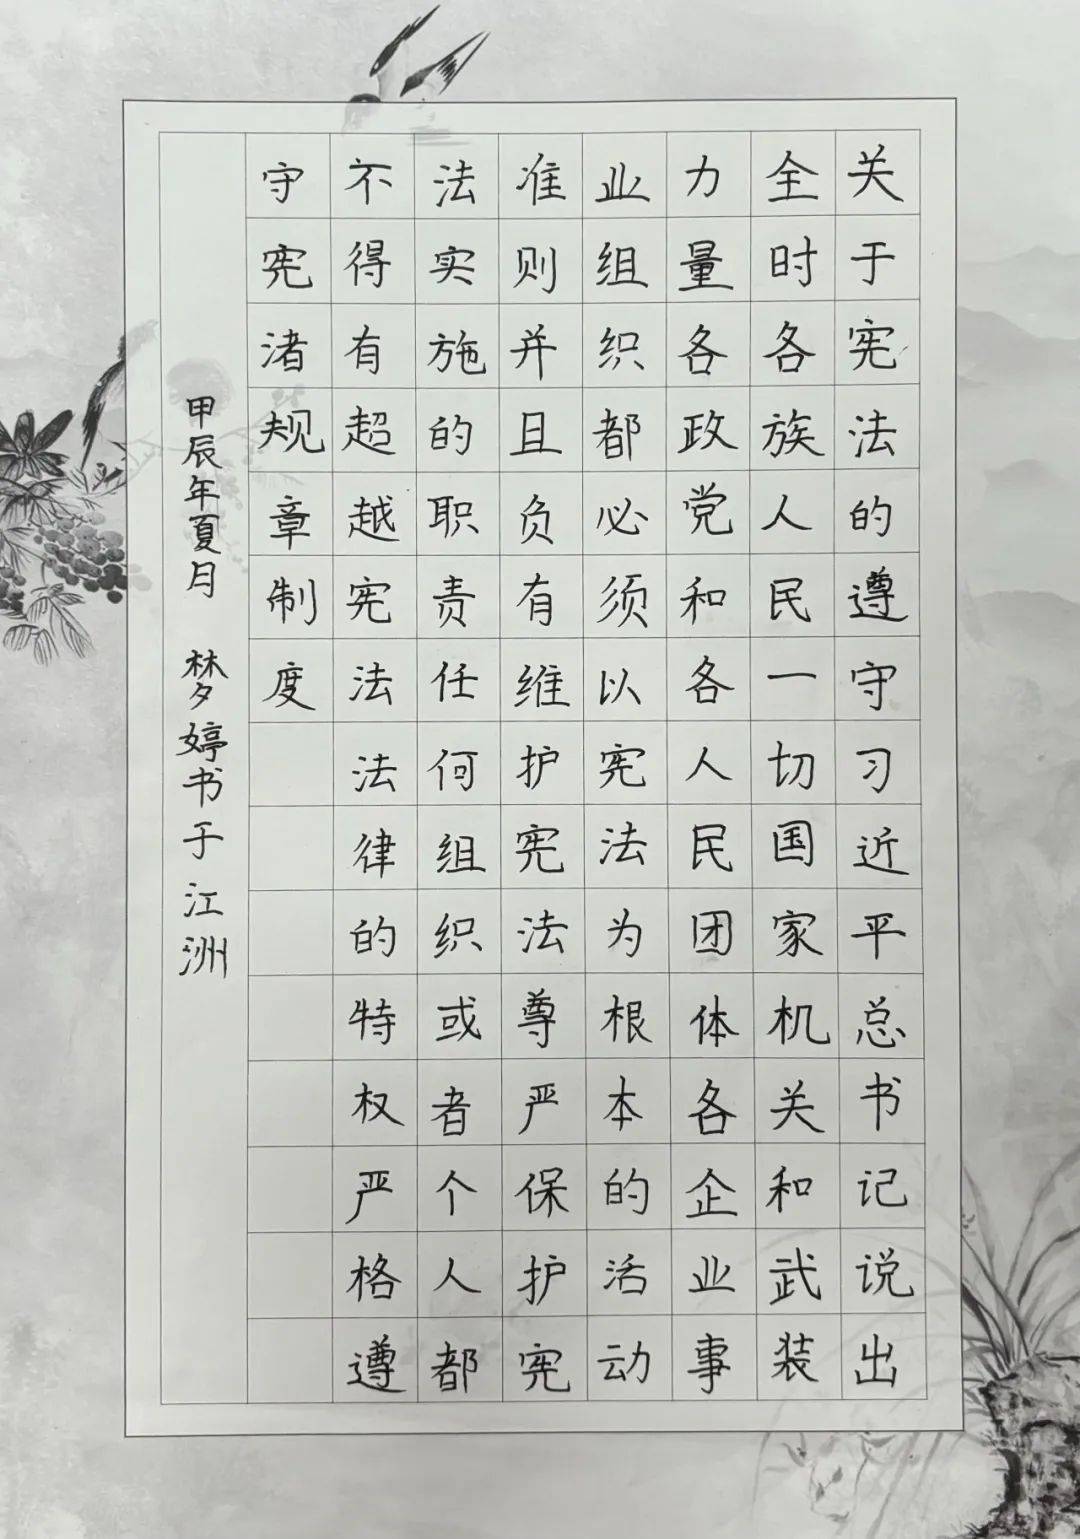 关于宪法的遵守习近平总书记说出
全时各族人民一切国家机关和武装
力量各政党和各人民团体各企业事
业组织都必须以宪法为根本的活动
准则并且负有维护宪法尊严保护宪
法实施的职责任何组织或者个人都
不得有超越宪法法律的特权严格遵
守宪渚规章制度
甲辰年夏月 梦婷书于江洲